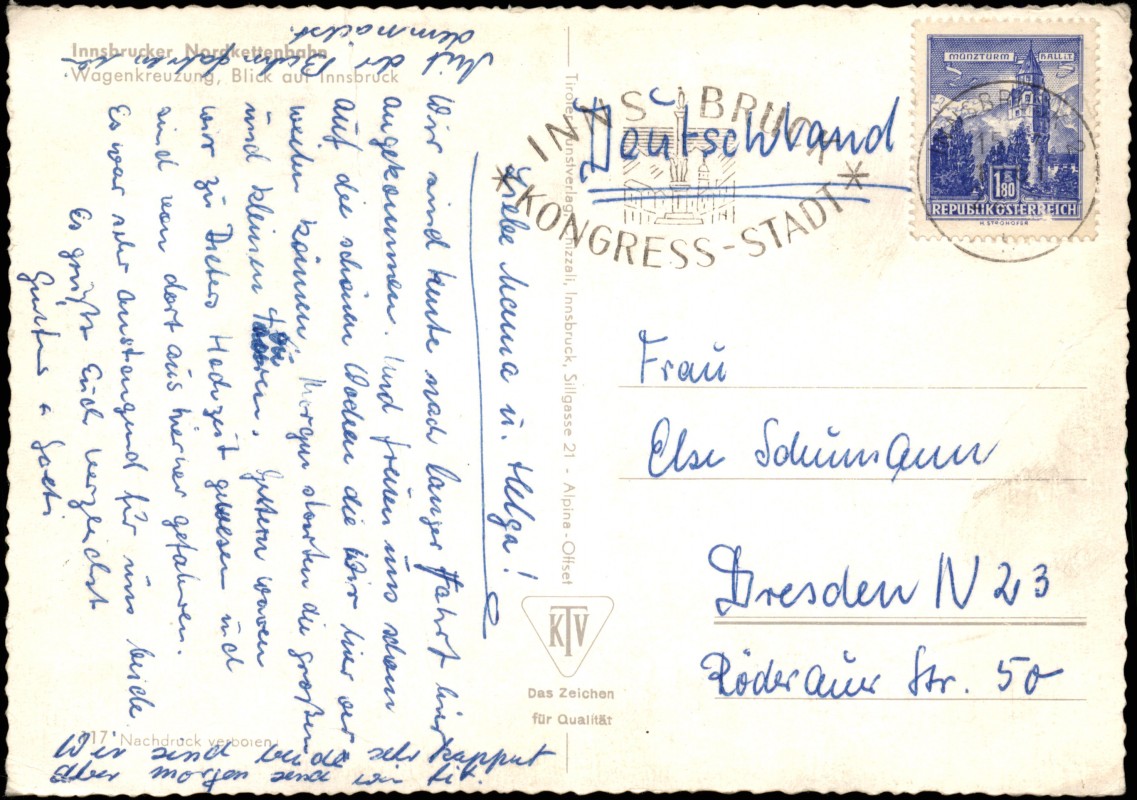 Innsbrucker Nordkettenbahn
Wagenkreuzung, Blick auf Innsbruck
Mit der Bahn fahren wir
demnächst.
Liebe Mama u. Helga!
Wir sind heute nach langer Fahrt hier
angekommen. Und freuen uns schon
auf die schönen Wochen die wir hier ver
weilen können. Morgen starten die großen
und kleinen Touren. Gestern waren
wir zu Dieters Hochzeit gewesen und
sind von dort aus hierher gefahren.
Es war sehr anstrengend für uns beide
Es grüßt Euch herzlichst
Günter u
Wir sind beide sehr kapput
aber morgen sind wir fit.
117 Nachdruck verboten
Tiroler Kunstverlag Chizzali, Innsbruck, Sillgasse 21 - Alpina-Offset
KTV
Das Zeichen
für Qualität
INNSBRUCK
KONGRESS-STADT
MÜNZTURM HALL I.T.
1.80
REPUBLIK ÖSTERREICH
H. STROHOFER
INNSBRUCK 2
Deutschland
Frau
Else Schumann
Dresden N 23
Röderauer Str. 50